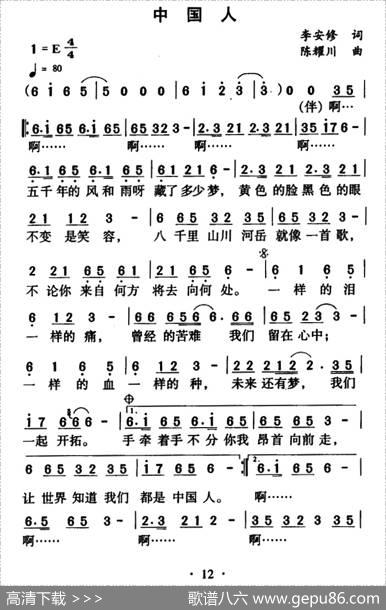 中 国 人
1=E 4/4
♩=80
李安修 词
陈耀川 曲
(6 i 65 | 5 0 0 0 | 6 i 2 3 | 3) 0 0 35 |
(伴) 啊……
6.i 65 6.i 65 | 65 32 3 - | 2.3 21 2.3 21 | 35 i7 6 - |
啊…… 啊…… 啊…… 啊……
6.1 65 6.1 65 | 61 21 6 - | 2.3 21 2.3 21 |
五千年的风和雨呀 藏了多少梦, 黄色的脸黑色的眼
21 12 3 - | 65 65 6.i 65 | 65 32 3 - |
不变是笑容, 八千里山川河岳就像一首歌,
2 21 65 61 | 65 12 6 - | 6 1 6 5 |
不论你来自何方将去向何处。 一样的泪
6 12 3 - | 66 656 3 32 | 22 123 - |
一样的痛, 曾经的苦难 我们留在心中;
6 1 6 5 | 6 12 3 - | 22 212 2.35 |
一样的血一样的种, 未来还有梦, 我们
i7 66 6 - | 6.i 65 6.i 65 | 65 32 3 - |
一起开拓。 手牵着手不分你我 昂首向前走,
6 65 32 35 | i7 65 6 - | 6.i 65 6 - |
让世界知道我们 都是中国人。 啊……
6.5 65 3 - | 2.3 23 2 - | 3.3 23 6 - |
啊…… 啊…… 啊……
· 12 ·
高清下载 >>>
歌谱八六 www.gepu86.com